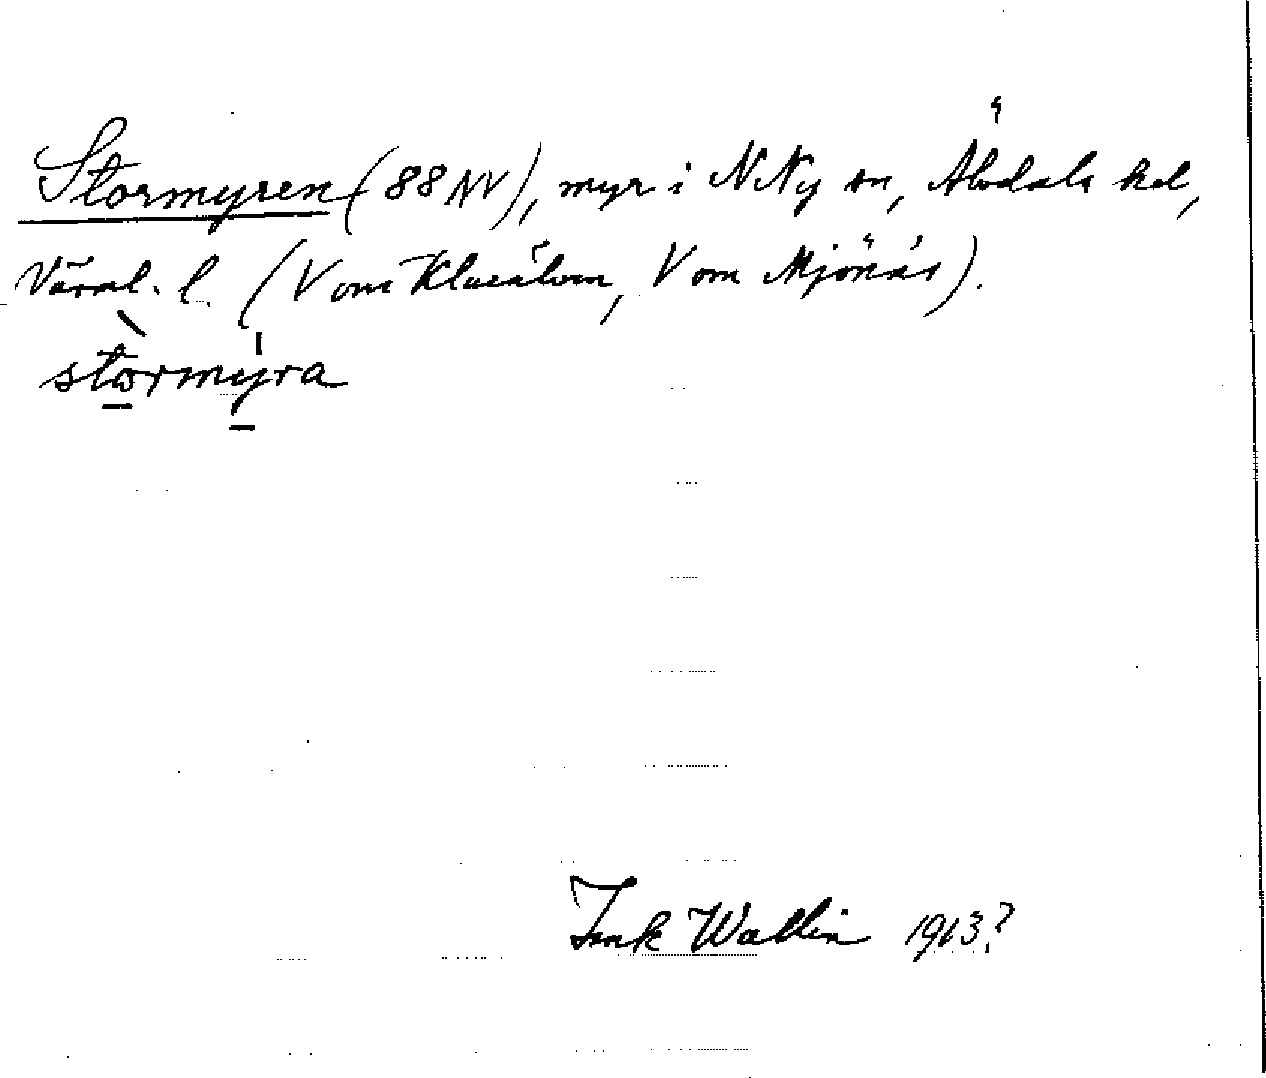 Stormyren (88 NV), myr i N Ny sn, Älvdals hd,
Värml. l. (V om Klarälven, V om Mjönäs).
stormyra
Wallin 1913?